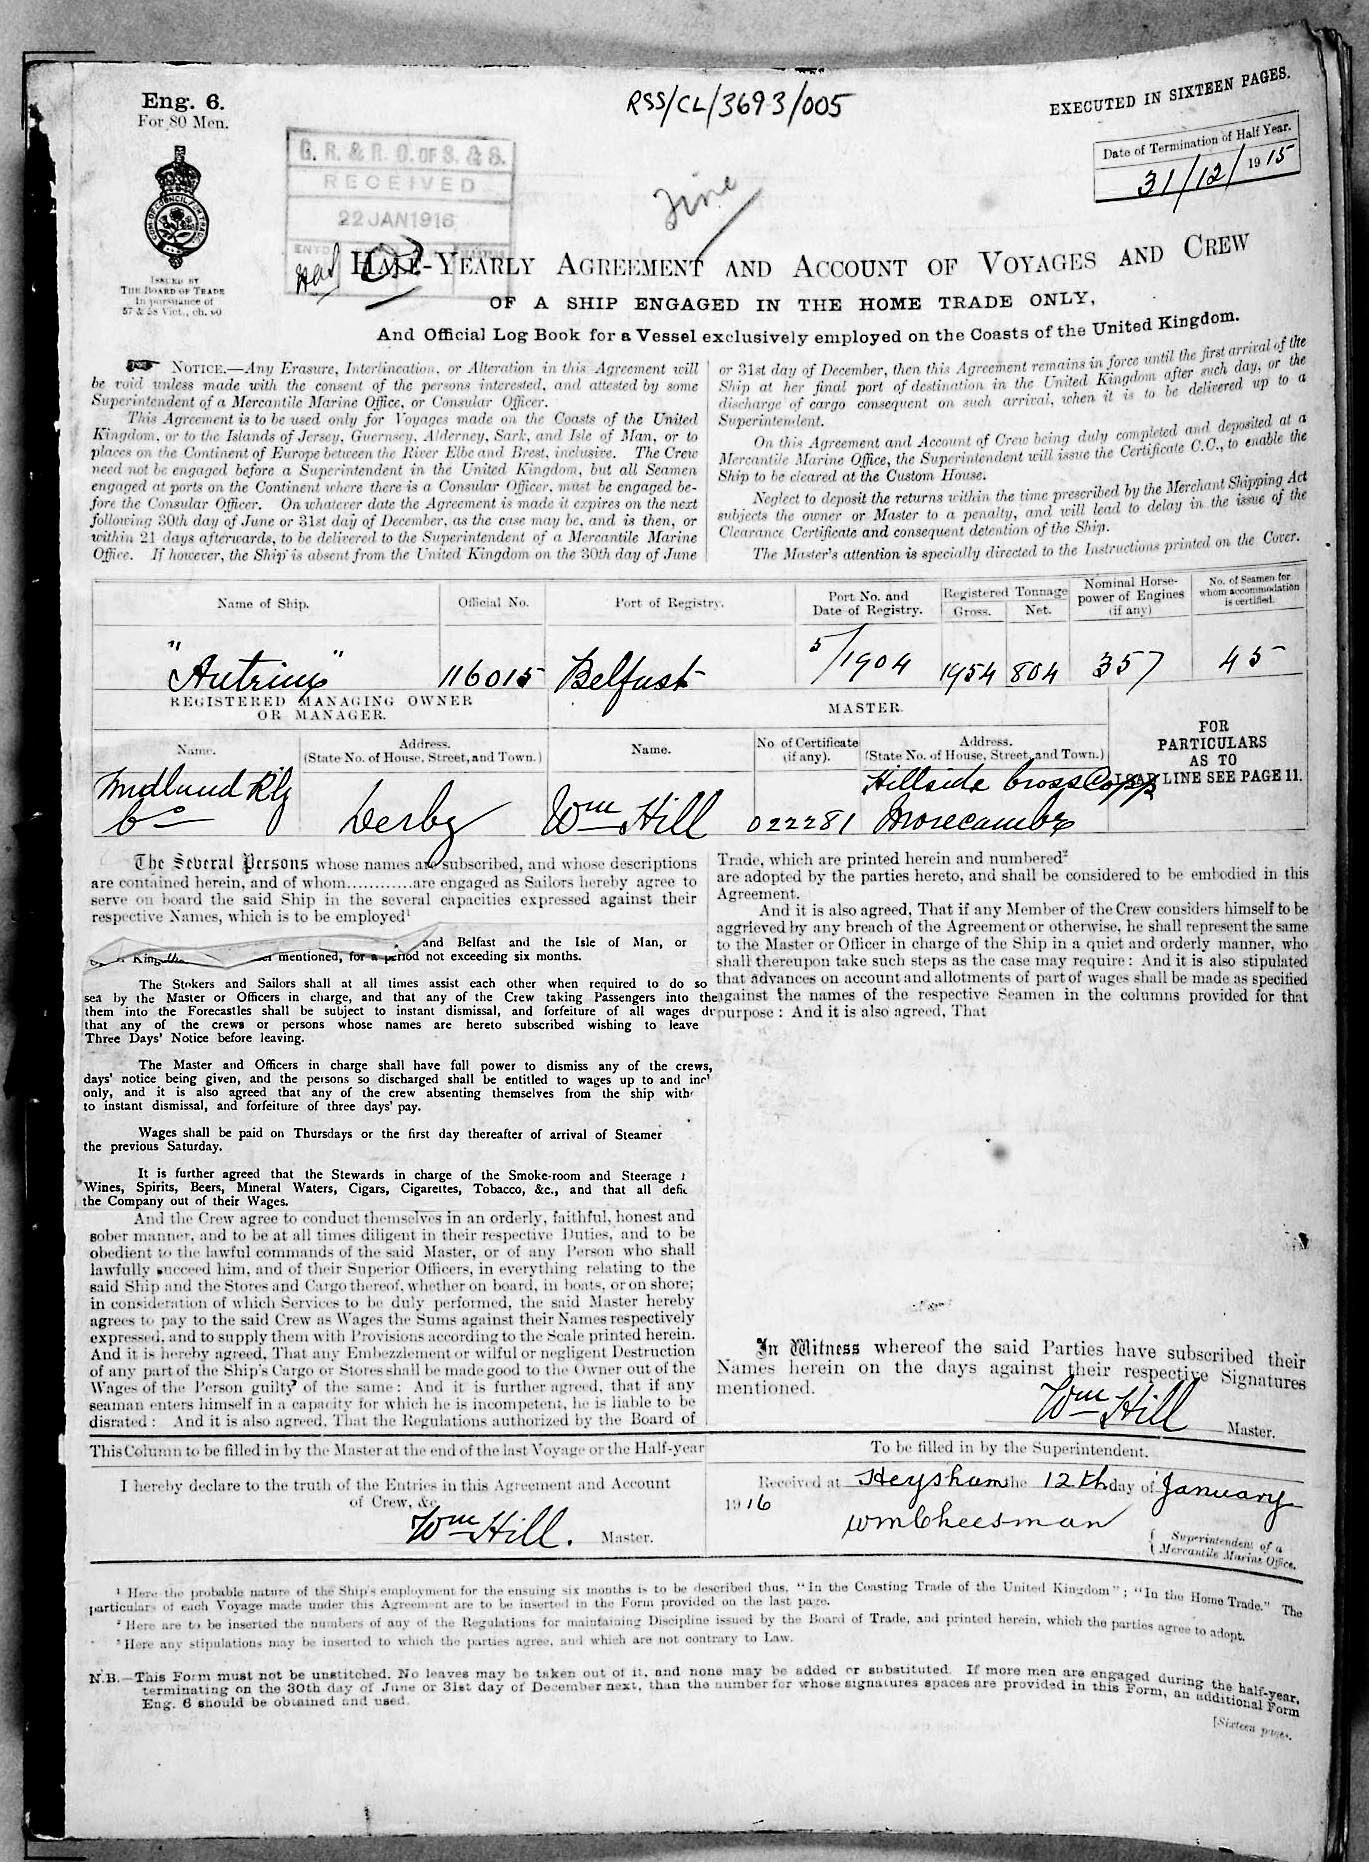 Eng. 6.
For 80 Men.
RSS/CL/3693/005
EXECUTED IN SIXTEEN PAGES.
Date of Termination of Half Year.
31/12/1915
G. R. & R. O. OF S. & S.
RECEIVED
22 JAN 1916
ISSUED BY
THE BOARD OF TRADE
In pursuance of
57 & 58 Vict., ch. 60
HALF-YEARLY AGREEMENT AND ACCOUNT OF VOYAGES AND CREW
OF A SHIP ENGAGED IN THE HOME TRADE ONLY,
And Official Log Book for a Vessel exclusively employed on the Coasts of the United Kingdom.
NOTICE.—Any Erasure, Interlineation, or Alteration in this Agreement will
be void unless made with the consent of the persons interested, and attested by some
Superintendent of a Mercantile Marine Office, or Consular Officer.
This Agreement is to be used only for Voyages made on the Coasts of the United
Kingdom, or to the Islands of Jersey, Guernsey, Alderney, Sark, and Isle of Man, or to
places on the Continent of Europe between the River Elbe and Brest, inclusive. The Crew
need not be engaged before a Superintendent in the United Kingdom, but all Seamen
engaged at ports on the Continent where there is a Consular Officer, must be engaged be-
fore the Consular Officer. On whatever date the Agreement is made it expires on the next
following 30th day of June or 31st day of December, as the case may be, and is then, or
within 21 days afterwards, to be delivered to the Superintendent of a Mercantile Marine
Office. If however, the Ship is absent from the United Kingdom on the 30th day of June
or 31st day of December, then this Agreement remains in force until the first arrival of the
Ship at her final port of destination in the United Kingdom after such day, or the
discharge of cargo consequent on such arrival, when it is to be delivered up to a
Superintendent.
On this Agreement and Account of Crew being duly completed and deposited at a
Mercantile Marine Office, the Superintendent will issue the Certificate C.C., to enable the
Ship to be cleared at the Custom House.
Neglect to deposit the returns within the time prescribed by the Merchant Shipping Act
subjects the owner or Master to a penalty, and will lead to delay in the issue of the
Clearance Certificate and consequent detention of the Ship.
The Master's attention is specially directed to the Instructions printed on the Cover.
Name of Ship. Official No. Port of Registry. Port No. and Date of Registry. Registered Tonnage Gross. Net. Nominal Horse-power of Engines (if any) No. of Seamen for whom accommodation is certified.
"Antrim" 116015 Belfast 5/1904 1954 804 357 45
REGISTERED MANAGING OWNER
OR MANAGER.
MASTER.
Name. Address. (State No. of House, Street, and Town.) Name. No. of Certificate (if any). Address. (State No. of House, Street, and Town.)
FOR
PARTICULARS
AS TO
LOAD LINE SEE PAGE 11.
Midland Rly
Co
Derby
Wm Hill
022281
Hillside Cross Copp
Morecambe
The Several Persons whose names are subscribed, and whose descriptions
are contained herein, and of whom............are engaged as Sailors hereby agree to
serve on board the said Ship in the several capacities expressed against their
respective Names, which is to be employed¹
and Belfast and the Isle of Man, or
mentioned, for a period not exceeding six months.
The Stokers and Sailors shall at all times assist each other when required to do so
sea by the Master or Officers in charge, and that any of the Crew taking Passengers into the
them into the Forecastles shall be subject to instant dismissal, and forfeiture of all wages
that any of the crews or persons whose names are hereto subscribed wishing to leave
Three Days' Notice before leaving.
The Master and Officers in charge shall have full power to dismiss any of the crews,
days' notice being given, and the persons so discharged shall be entitled to wages up to and
only, and it is also agreed that any of the crew absenting themselves from the ship
to instant dismissal, and forfeiture of three days' pay.
Wages shall be paid on Thursdays or the first day thereafter of arrival of Steamer
the previous Saturday.
It is further agreed that the Stewards in charge of the Smoke-room and Steerage
Wines, Spirits, Beers, Mineral Waters, Cigars, Cigarettes, Tobacco, &c., and that all
the Company out of their Wages.
And the Crew agree to conduct themselves in an orderly, faithful, honest and
sober manner, and to be at all times diligent in their respective Duties, and to be
obedient to the lawful commands of the said Master, or of any Person who shall
lawfully succeed him, and of their Superior Officers, in everything relating to the
said Ship and the Stores and Cargo thereof, whether on board, in boats, or on shore;
in consideration of which Services to be duly performed, the said Master hereby
agrees to pay to the said Crew as Wages the Sums against their Names respectively
expressed, and to supply them with Provisions according to the Scale printed herein.
And it is hereby agreed, That any Embezzlement or wilful or negligent Destruction
of any part of the Ship's Cargo or Stores shall be made good to the Owner out of the
Wages of the Person guilty of the same: And it is further agreed, that if any
seaman enters himself in a capacity for which he is incompetent, he is liable to be
disrated: And it is also agreed, That the Regulations authorized by the Board of
Trade, which are printed herein and numbered²
are adopted by the parties hereto, and shall be considered to be embodied in this
Agreement.
And it is also agreed, That if any Member of the Crew considers himself to be
aggrieved by any breach of the Agreement or otherwise, he shall represent the same
to the Master or Officer in charge of the Ship in a quiet and orderly manner, who
shall thereupon take such steps as the case may require: And it is also stipulated
that advances on account and allotments of part of wages shall be made as specified
against the names of the respective Seamen in the columns provided for that
purpose: And it is also agreed, That
In Witness whereof the said Parties have subscribed their
Names herein on the days against their respective Signatures
mentioned.
Wm Hill Master.
This Column to be filled in by the Master at the end of the last Voyage or the Half-year
I hereby declare to the truth of the Entries in this Agreement and Account
of Crew, &c.
Wm Hill. Master.
To be filled in by the Superintendent.
Received at Heysham the 12th day of January
1916
Wm Cheesman
Superintendent of a
Mercantile Marine Office.
¹ Here the probable nature of the Ship's employment for the ensuing six months is to be described thus, "In the Coasting Trade of the United Kingdom"; "In the Home Trade." The
particulars of each Voyage made under this Agreement are to be inserted in the Form provided on the last page.
² Here are to be inserted the numbers of any of the Regulations for maintaining Discipline issued by the Board of Trade, and printed herein, which the parties agree to adopt.
³ Here any stipulations may be inserted to which the parties agree, and which are not contrary to Law.
N.B.—This Form must not be unstitched. No leaves may be taken out of it, and none may be added or substituted. If more men are engaged during the half-year,
terminating on the 30th day of June or 31st day of December next, than the number for whose signatures spaces are provided in this Form, an additional Form
Eng. 6 should be obtained and used.
[Sixteen pages.